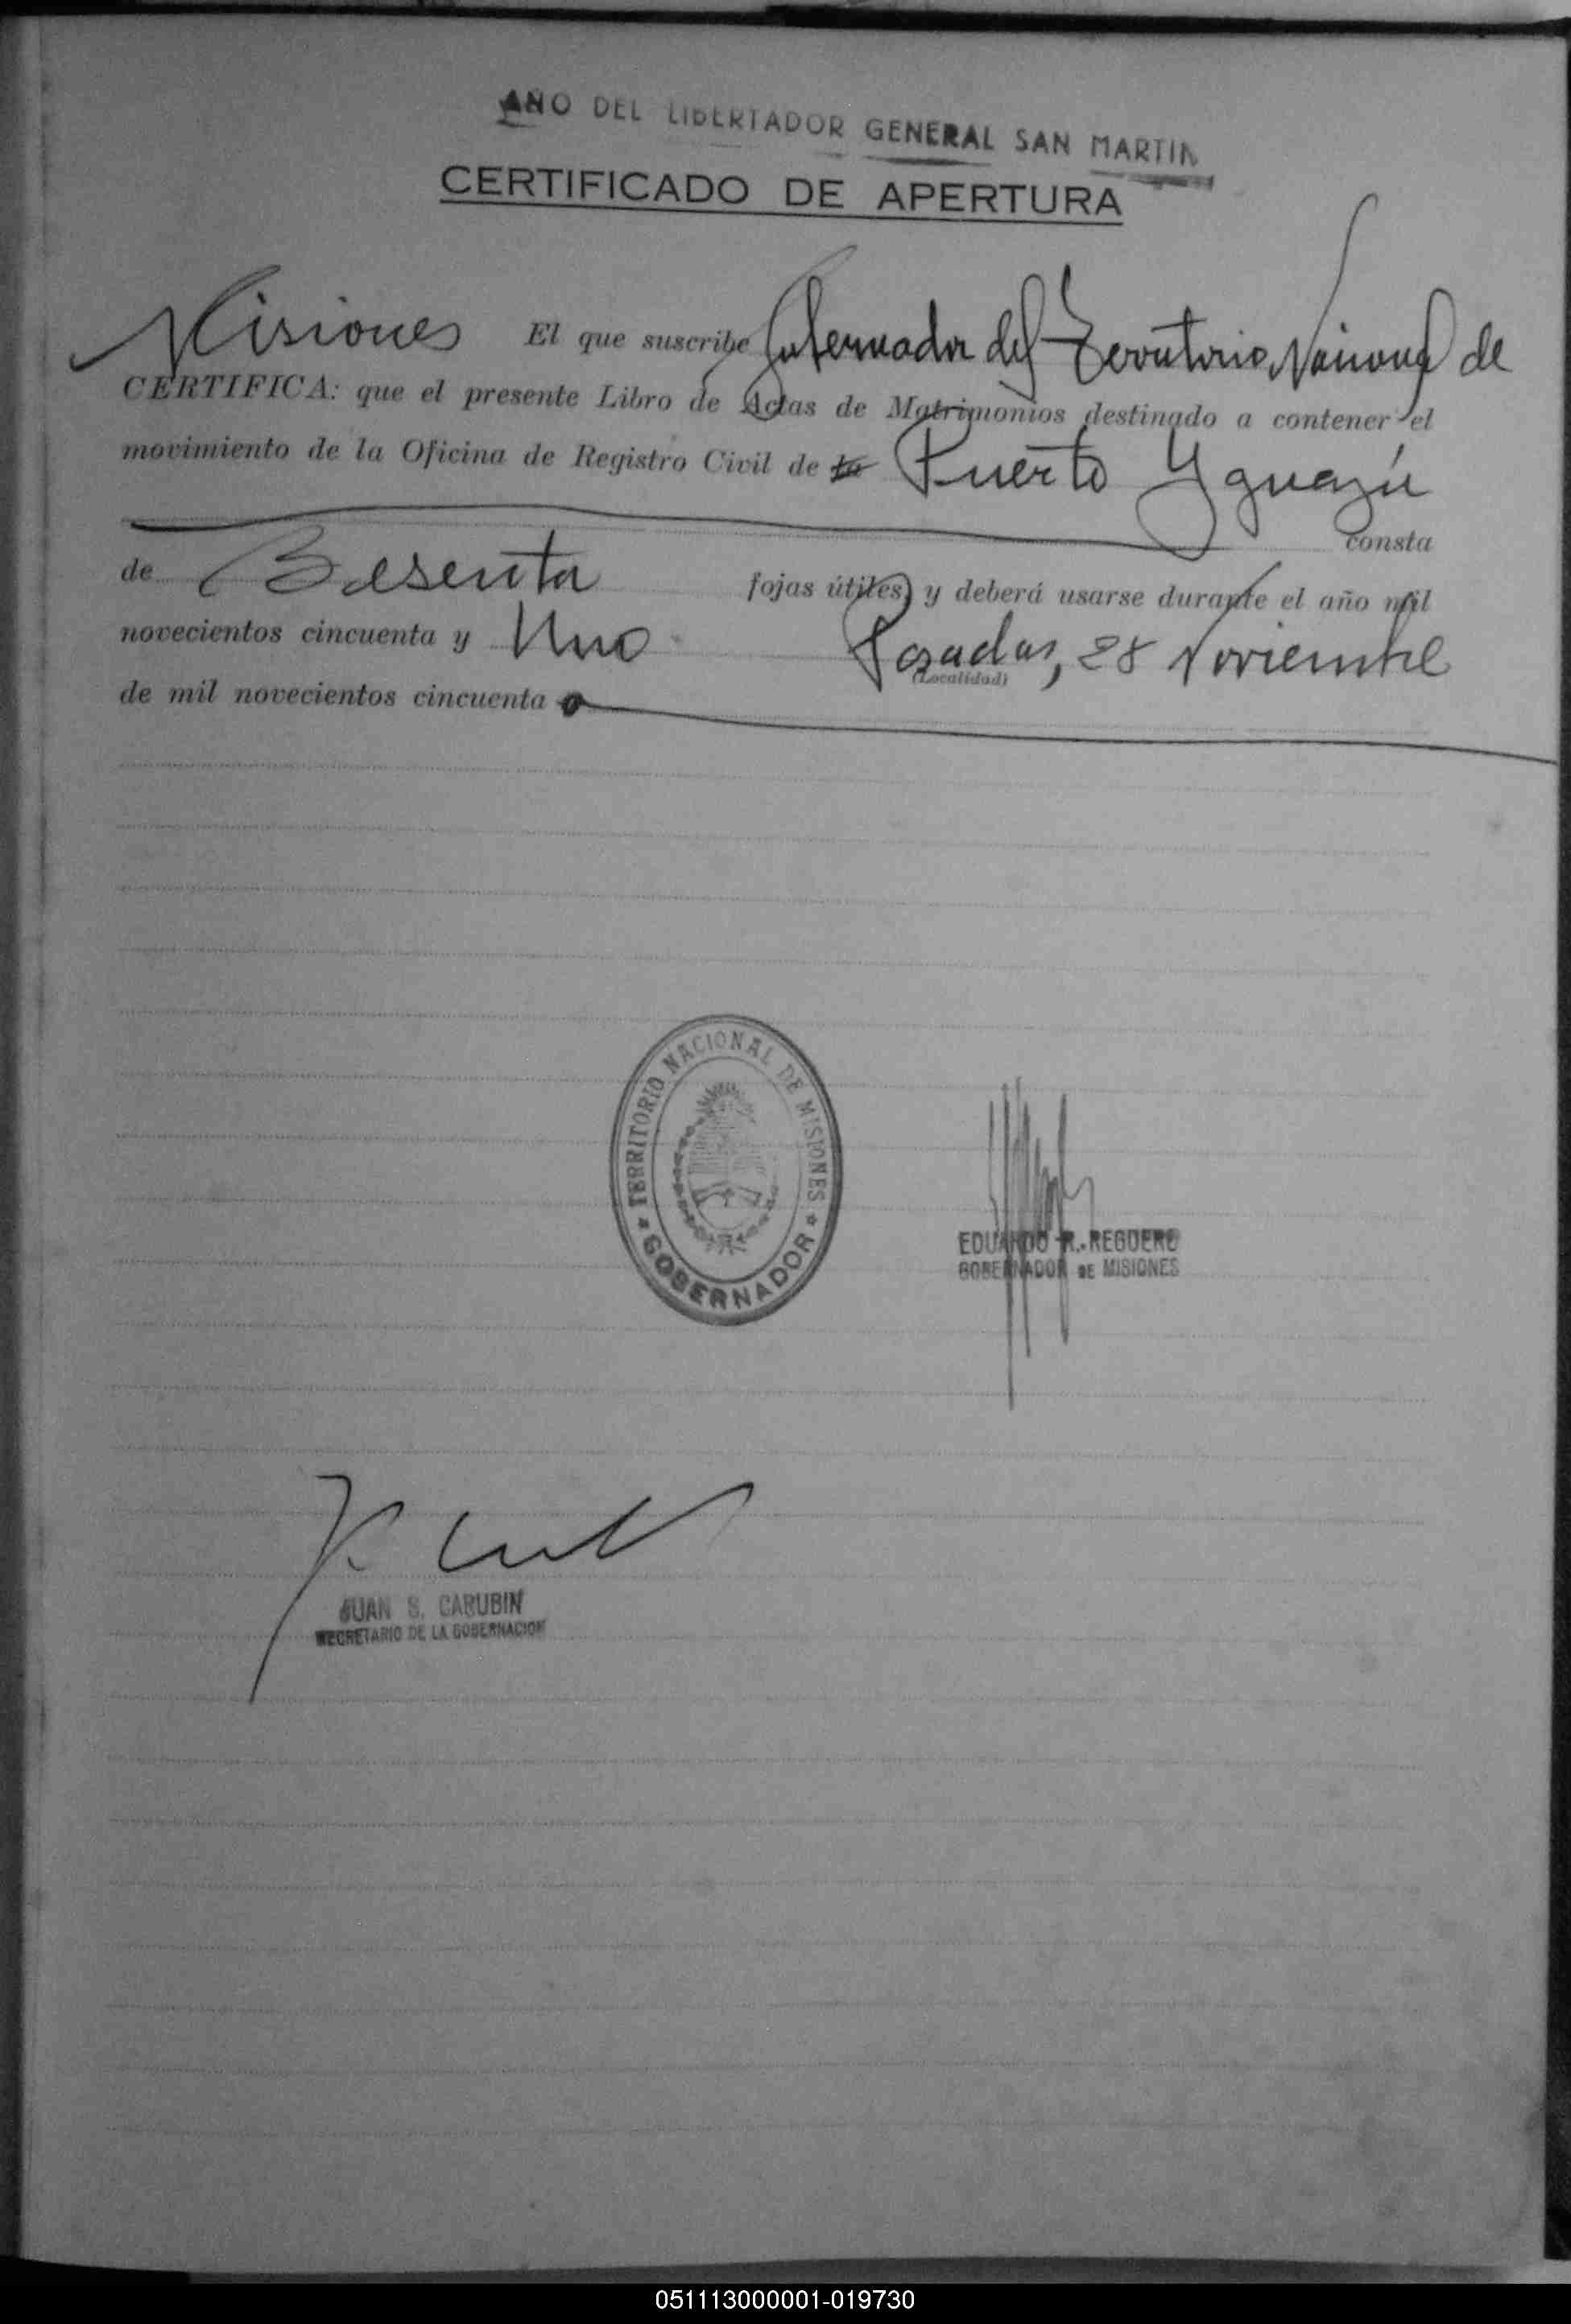 AÑO DEL LIBERTADOR GENERAL SAN MARTIN
CERTIFICADO DE APERTURA
Misiones El que suscribe Gobernador del Territorio Nacional de
CERTIFICA: que el presente Libro de Actas de Matrimonios destinado a contener el
movimiento de la Oficina de Registro Civil de la Puerto Yguazú
consta
de Sesenta fojas útiles, y deberá usarse durante el año mil
novecientos cincuenta y Uno Posadas, 28 Noviembre
(Localidad)
de mil novecientos cincuenta
TERRITORIO NACIONAL DE MISIONES
GOBERNADOR
EDUARDO R. REGUERE
GOBERNADOR DE MISIONES
JUAN S. CARUBIN
SECRETARIO DE LA GOBERNACION
051113000001-019730